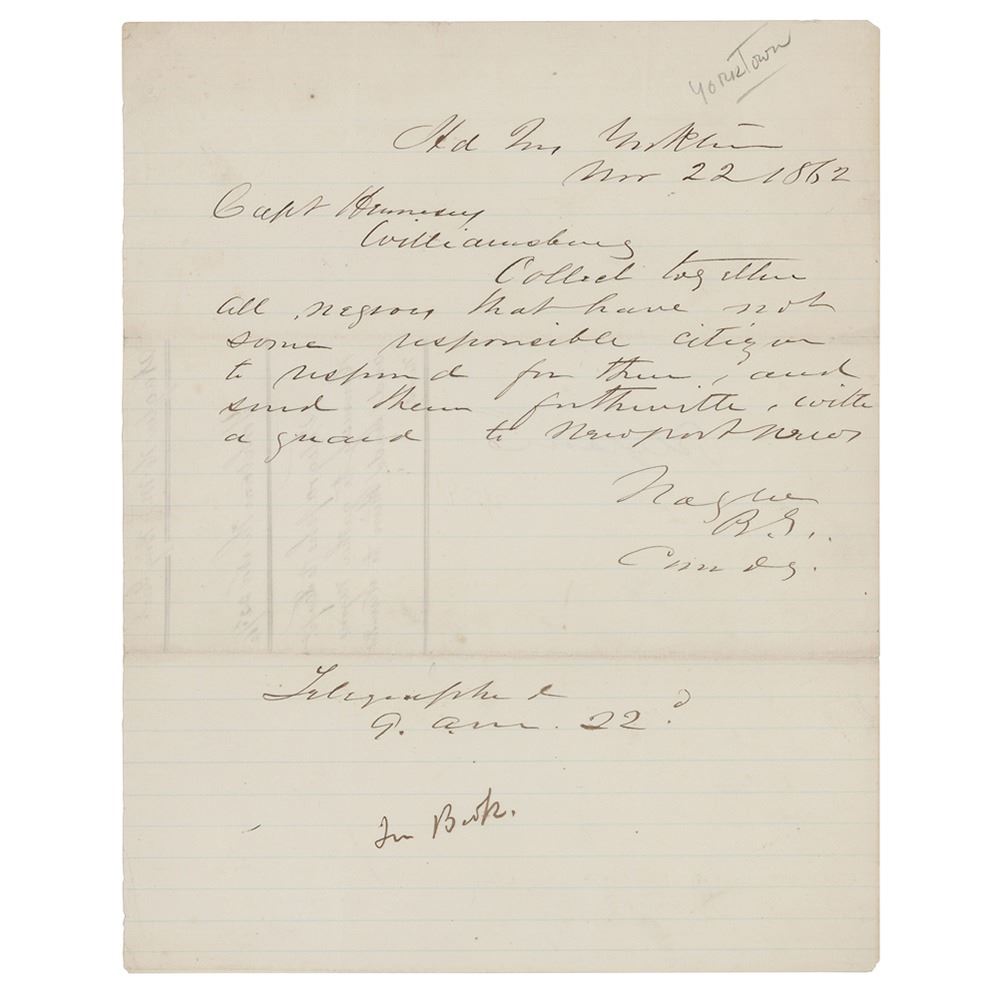 YorkTown
Hd Qrs Yorktown
Nov 22 1862
Capt Hennessy
Williamsburg
Collect together
all negroes that have not
some responsible citizen
to respond for them, and
send them forthwith, with
a guard to Newport News
Naglee
B.G.,
Comdg.
Telegraphed
9. a.m. 22d
In Book.